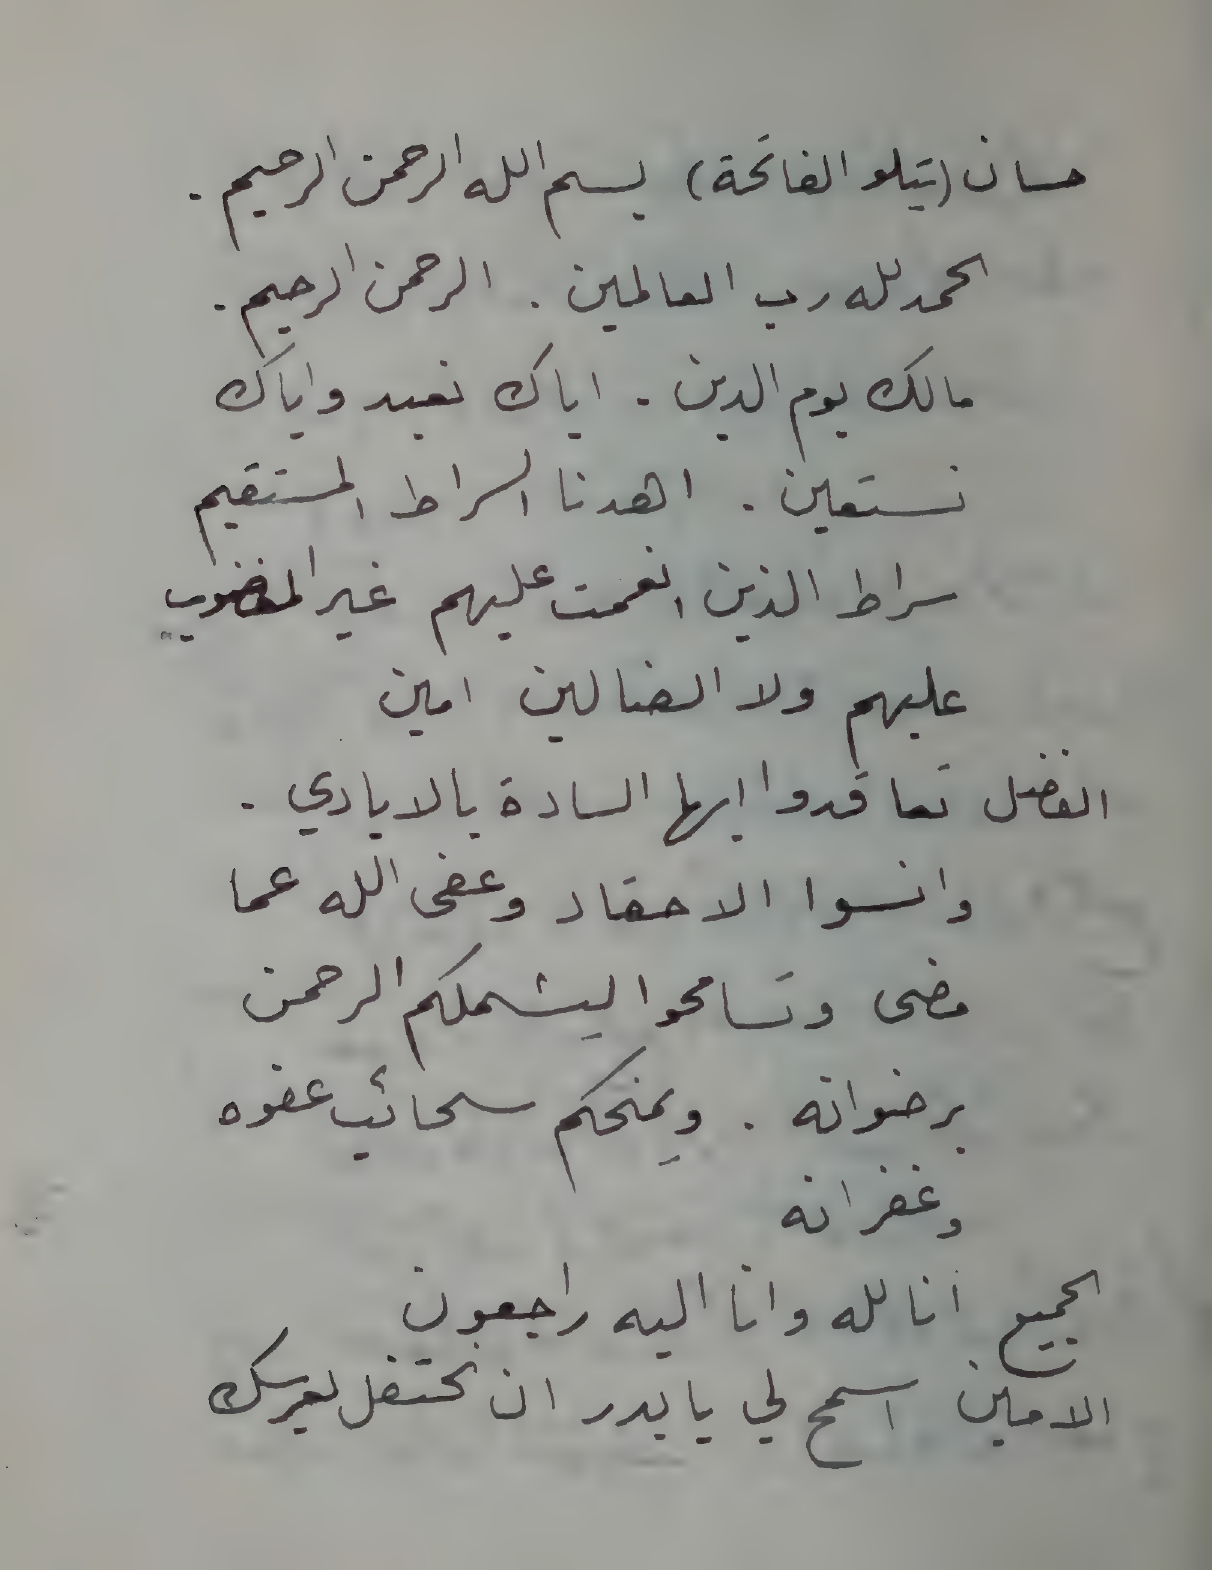 حسان (يتلو الفاتحة) بسم الله الرحمن الرحيم .
الحمد لله رب العالمين . الرحمن الرحيم .
مالك يوم الدين . اياك نعبد واياك
نستعين . اهدنا السراط المستقيم
سراط الذين انعمت عليهم غير المغضوب
عليهم ولا الضالين امين
الفضل تعاقدوا ايها السادة بالايادي .
وانسوا الاحقاد وعفى الله عما
مضى وتسامحوا ليشملكم الرحمن
برضوانه . ويمنحكم سحائب عفوه
وغفرانه
الجميع انا لله وانا اليه راجعون
الامين اسمح لي يا بدر ان نحتفل بعرسك